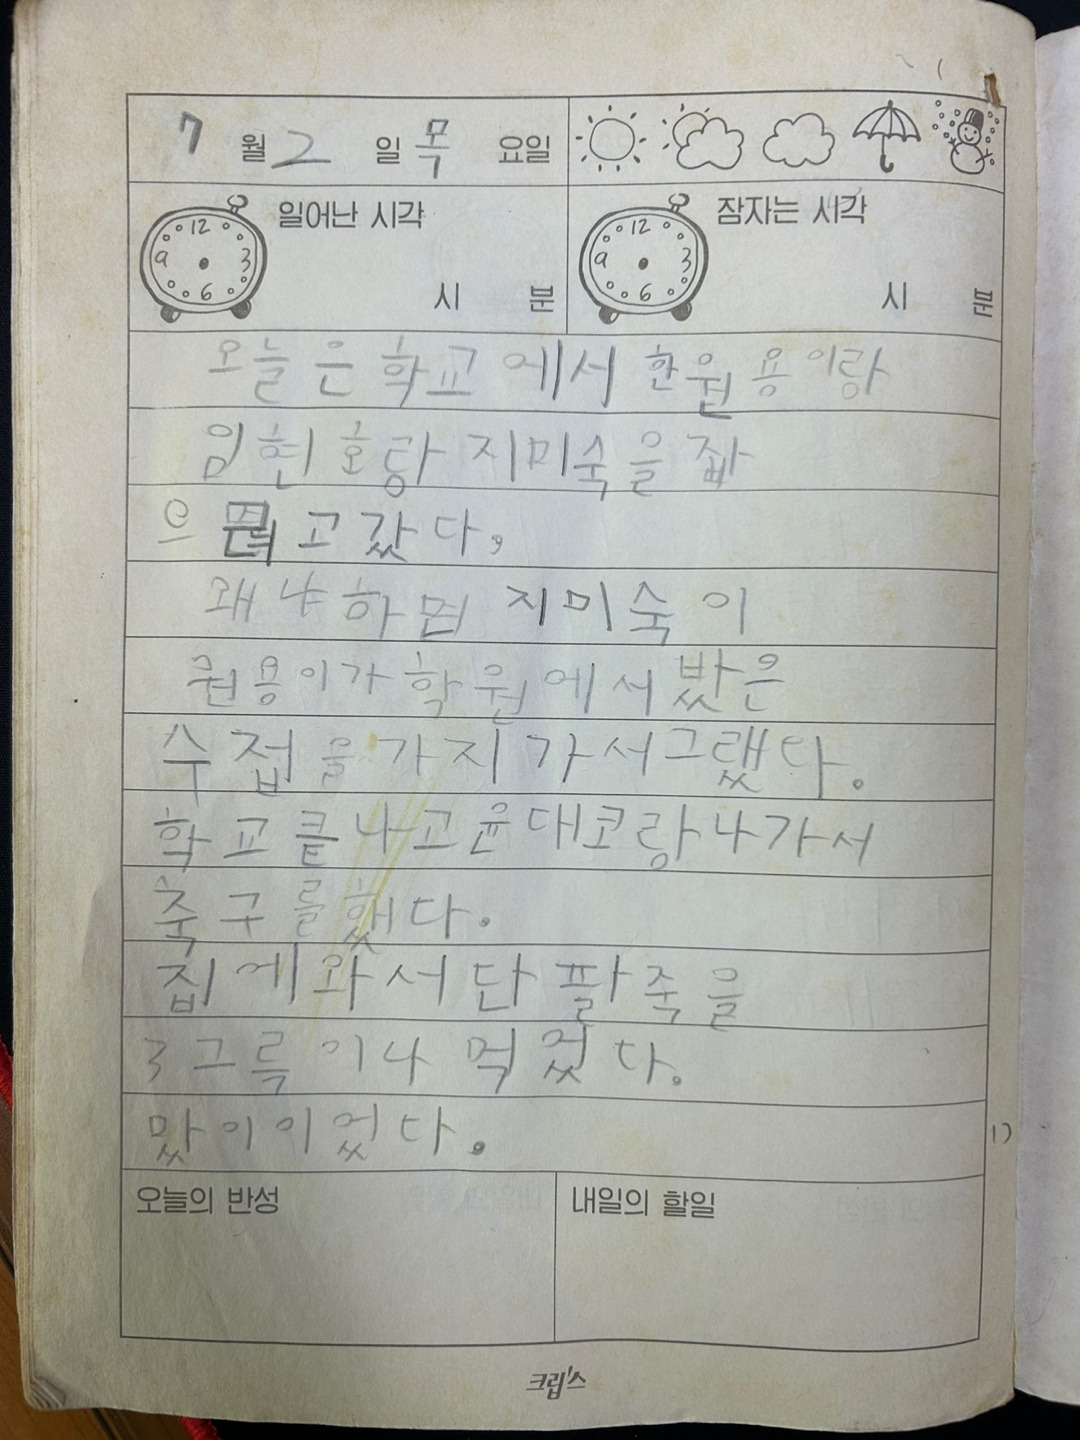 7 월 2 일 목 요일
일어난 시각
12 3 6 9
시 분
잠자는 시각
12 3 6 9
시 분
오늘은 학교에서 한원용이랑
임현호탕 지미숙을 잡
으 고 갔다,
왜냐하면 지미숙이
권용이가 학원에서 밨은
수접을 가지가서그랬다.
학교 끝나고 윤대코랑나가서
축구를했다.
집에와서 단팔죽을
3그륵이나 먹었다.
맜이이었다.
오늘의 반성
내일의 할일
크립스